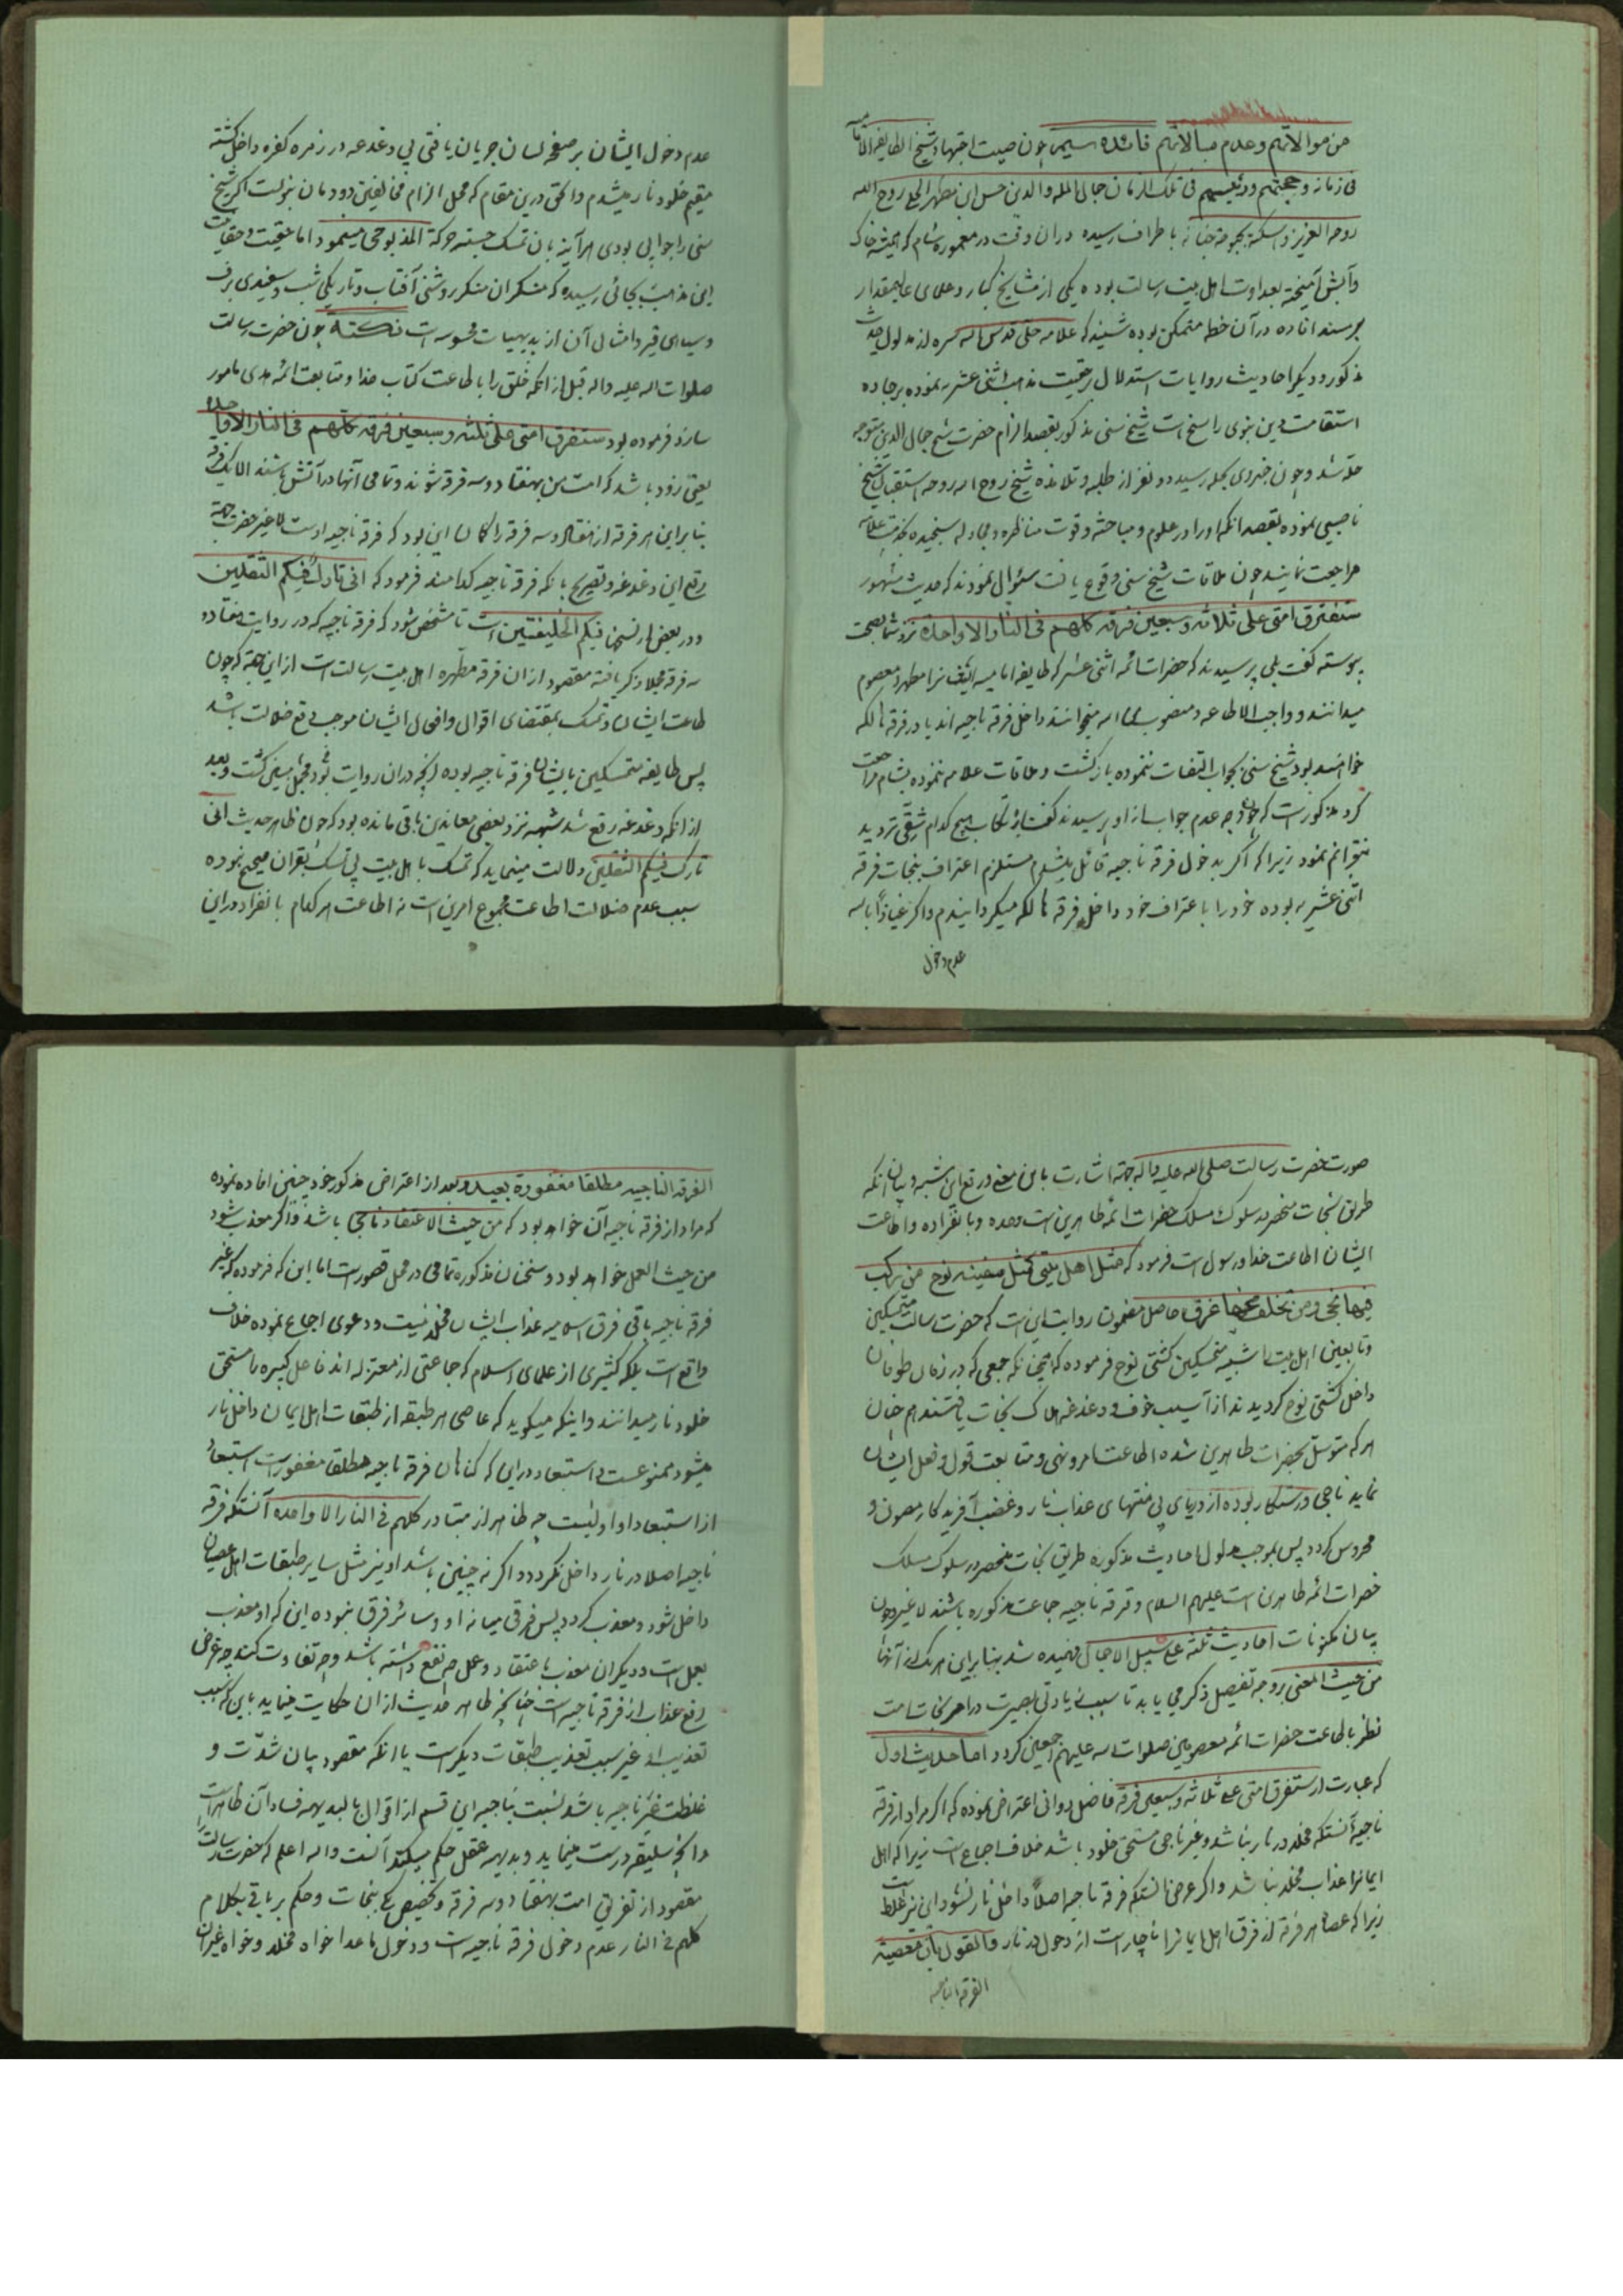 من موالاتهم وعدم مبالاتهم فائده سیمه چون صیت اجتهاد شیخ الطایفه الامامیه
فی زمانه وحجتهم ورئیسهم فی تلک الزمان جمال المله والدین حسن ابن مطهر الحلی روح الله
روحه العزیز واسکنه بحبوحة جنانه باطراف رسیده دران وقت در معموره شام که همیشه خاک
وآبش آمیخته بعداوت اهل بیت رسالت بوده یکی از مشایخ کبار وعلمای عالیمقدار
بر مسند افاده درآن خطه متمکن بوده شنید که علامه حلی قدس الله سره از مدلول حدیث
مذکور ودیگر احادیث وروایات استدلال بر حقیت مذهب اثنی عشر نموده بر جاده
استقامت دین نبوی راسخ است شیخ سنی مذکور بقصد الزام حضرت شیخ جمال الدین متوجه
حله شد وچون خبر وی بحله رسید دو نفر از طلبه وتلامذه شیخ روح الله روحه استقبال شیخ
ناصبی نموده بقصد انکه او را در علوم ومباحثه وقوت مناظره ومجادله سنجیده بخدمت علامه
مراجعت نمایند چون ملاقات شیخ سنی وقوع یافت سئوال نمودند که حدیث مشهور
ستفترق امتی علی ثلاثه وسبعین فرقه کلهم فی النار الا واحدة نزد شما بصحت
پیوسته گفت بلی پرسیدند که حضرات ائمه اثنی عشر که طایفه امامیه ایشانرا مطهر ومعصوم
میدانند وواجب الاطاعه ومنصوب من الله میخوانند داخل فرقه ناجیه اند یا در فرقه هالکه
خواهند بود شیخ سنی بجواب التفات ننموده بازگشت وملاقات علامه ننموده بشام مراجعت
کرد مذکور است که چون وجه عدم جواب از او پرسیدند گفت بارتکاب هیچ کدام شقی تردید
نتوانم نمود زیرا که اگر بدخول فرقه ناجیه قائل میشدم مستلزم اعتراف بنجات فرقه
اثنی عشریه بوده خود را باعتراف خود داخل فرقه هالکه میگردانیدم واگر عیاذا بالله
عدم دخول
عدم دخول ایشان بر صفحه لسان جریان یافتی بی دغدغه در زمره کفره داخل گشته
مقیم خلود نار میشدم والحق درین مقام که محل الزام مخالفین دودمان نبوتست اگر شیخ
سنی را جوابی بودی هر آینه بان تمسک جسته حرکة المذبوحی مینمود اما حقیت وحقانیت
این مذهب بجائی رسیده که منکران منکر روشنی آفتاب وتاریکی شب وسفیدی برف
وسیاهی قیر وامثال آن از بدیهیات محسوسه است نکته چون حضرت رسالت
صلوات الله علیه واله قبل از انکه خلق را باطاعت کتاب خدا ومتابعت ائمه هدی مامور
سازد فرموده بود ستفرق امتی علی ثلثه وسبعین فرقه کلهم فی النار الا واحدة
یعنی زود باشد که امت من بهفتاد وسه فرقه شوند وتمامی آنها در آتش باشند الا یک فرقه
بنا براین هر فرقه از هفتاد وسه فرقه را گمان این بود که فرقه ناجیه اوست لا غیر حضرت جهة
رفع این دغدغه وتصریح بانکه فرقه ناجیه کدامند فرمود که انی تارک فیکم الثقلین
ودر بعضی از نسخها فیکم الخلیفتین است تا مشخص شود که فرقه ناجیه که در روایت هفتاد و
سه فرقه مجملا ذکر یافته مقصود ازان فرقه مطهره اهل بیت رسالت است از این جهة که چون
طاعت ایشان وتمسک بمقتضای اقوال وافعال ایشان موجب رفع ضلالت باشد
پس طایفه متمسکین بایشان فرقه ناجیه بوده آنچه دران روایت بود مجمل مبین گشت وبعد
از انکه دغدغه رفع شد شبهه نزد بعضی معاندین باقی مانده بود که چون ظاهر حدیث انی
تارک فیکم الثقلین دلالت مینماید که تمسک باهل بیت بی تمسک بقران صحیح نبوده
سبب عدم ضلالت اطاعت مجموع امرین است نه اطاعت هر کدام بانفراد دراین
صورت حضرت رسالت صلی الله علیه واله جهة اشارت باین معنی ورفع این شبهه وبیان انکه
طریق نجات منحصر در سلوک مسلک حضرات ائمه طاهرین است وحده وبانفراده واطاعت
ایشان اطاعت خدا ورسول است فرمود که مثل اهل بیتی کمثل سفینه نوح من یرکب
فیها نجی ومن تخلف عنها غرق حاصل مضمون روایت این است که حضرت رسالت متمسکین
وتابعین اهل بیت را شبیه متمسکین کشتی نوح فرموده که همچنانکه جمعی که در زمان طوفان
داخل کشتی نوح گردیدند از آسیب خوف ودغدغه هلاک نجات یافتند همچنان
هر که متوسل بحضرات طاهرین شده اطاعت امر ونهی ومتابعت قول وفعل ایشان
نماید ناجی ورستگار بوده از دریای بی منتهای عذاب نار وغضب آفریدگار مصون و
محروس گردد پس بموجب مدلول احادیث مذکوره طریق نجات منحصر در سلوک مسلک
حضرات ائمه طاهرین است علیهم السلام وفرقه ناجیه جماعت مذکوره باشند لا غیر وچون
بیان مکنونات احادیث ثلثه علی سبیل الاجمال فهمیده شد بنا براین هر یک از آنها
من حیث المعنی بر وجه تفصیل ذکر می یابد تا سبب زیادتی بصیرت در امر نجات امت
نظر باطاعت حضرات ائمه معصومین صلوات الله علیهم اجمعین گردد اما حدیث اول
که عبارت از ستفرق امتی علی ثلاثه وسبعین فرقه فاضل دوانی اعتراض نموده که اگر مراد از فرقه
ناجیه آنستکه مخلد در نار نباشد وغیر ناجی مستحق خلود باشد خلاف اجماع است زیرا که اهل
ایمانرا عذاب مخلد نباشد واگر غرض آنستکه فرقه ناجیه اصلاً داخل نار نشود این نیز غلط است
زیرا که عصاة هر فرقه از فرق اهل ایمانرا ناچار است از دخول در نار والقول بان معصیة
الفرقه الناجیه
الفرقه الناجیه مطلقا مغفورة بعید وبعد از اعتراض مذکور خود چنین افاده نموده
که مراد از فرقه ناجیه آن خواهد بود که من حیث الاعتقاد ناجی باشد واگر معذب شود
من حیث العمل خواهد بود وسخنان مذکوره تمامی در محل قصور است اما این که فرموده که غیر
فرقه ناجیه باقی فرق اسلامیه عذاب ایشان مخلد نیست ودعوی اجماع نموده خلاف
واقع است بلکه کثیری از علمای اسلام که جماعتی از معتزله اند فاعل کبیره را مستحق
خلود نار میدانند واینکه میگوید که عاصی هر طبقه از طبقات اهل ایمان داخل نار
میشود ممنوعست واستبعاد در این که گناهان فرقه ناجیه مطلقا مغفور است استبعاد
از استبعاد او اولیست چه ظاهر از متبادر کلهم فی النار الا واحده آنستکه فرقه
ناجیه اصلا در نار داخل نگردد واگر نه چنین باشد او نیز مثل سایر طبقات اهل عصیان
داخل شود ومعذب گردد پس فرقی میانه او وسائر فرق نبوده این که او معذب
بعمل است ودیگران معذب باعتقاد وعمل چه نفع داشته باشد وچه تفاوت کند چه غرض
رفع عذاب از فرقه ناجیه است چنانچه ظاهر حدیث ازان حکایت مینماید باین که سبب
تعذیب او غیر سبب تعذیب طبقات دیگر است یا انکه مقصود بیان شدّت و
غلظت غیر ناجیه باشد نسبت بناجیه این قسم از اقوال بالبدیهه فساد آن ظاهر است
وانچه سلیقه درست مینماید وبدیهه عقل حکم میکند آنست والله اعلم که حضرت رسالت را
مقصود از تفریق امت بهفتاد وسه فرقه وتخصیص یکی بنجات وحکم بر باقی بکلام
کلهم فی النار عدم دخول فرقه ناجیه است ودخول ماعدا خواه مخلد وخواه غیران